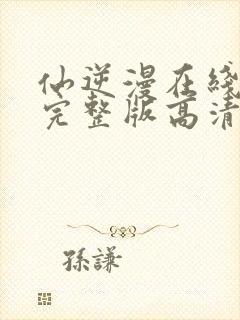 仙逆漫在綫
完整版高清
孫謙